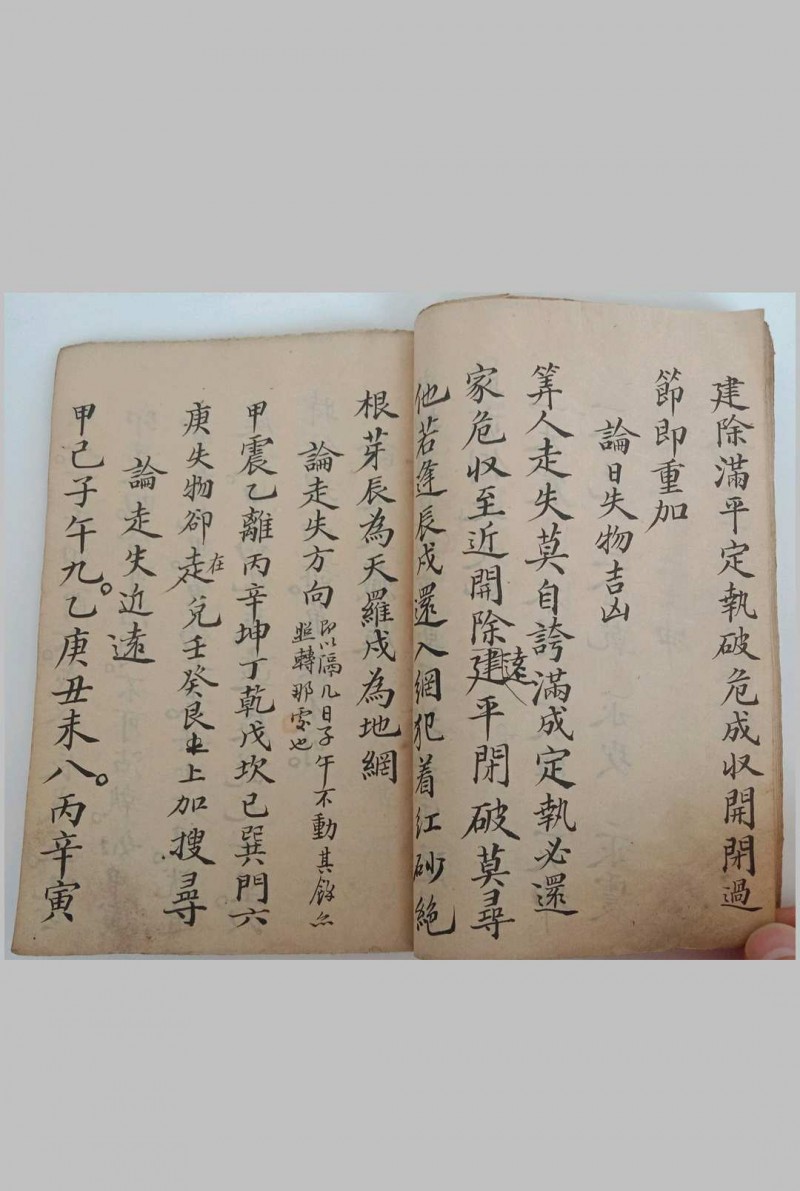 建除滿平定執破危成収開閉過
節即重加
論日失物吉凶
筭人走失莫自誇滿成定執必還
家危収至近開除建遠平閉破莫尋
他若逢辰戌還入網犯着紅砂絶
根芽辰為天羅戌為地網
論走失方向即以隔几日子午不動其餘
照轉那宮也
甲震乙離丙辛坤丁乾戊坎已巽門六
庚失物卻走在兌壬癸艮上加搜尋
論走失近遠
甲己子午九。乙庚丑未八。丙辛寅